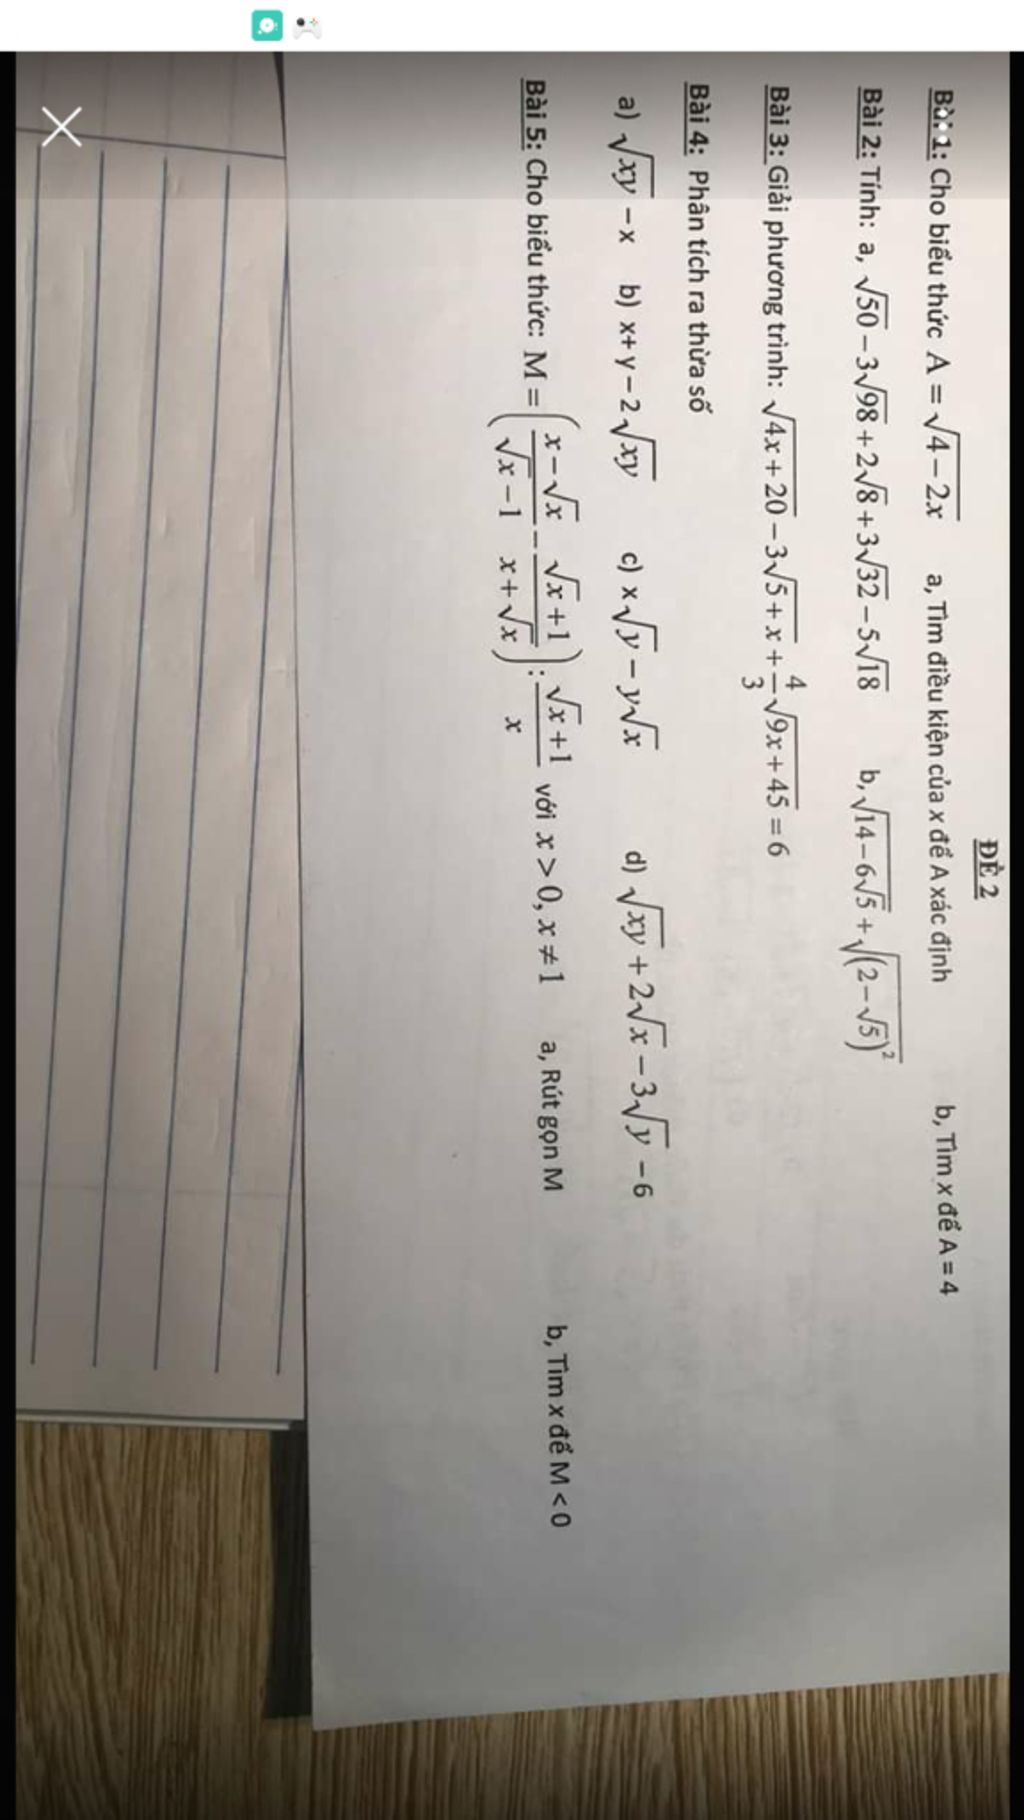 ĐỀ 2
Bài 1: Cho biểu thức A = √(4 − 2x) a, Tìm điều kiện của x để A xác định b, Tìm x để A = 4
Bài 2: Tính: a, √50 − 3√98 + 2√8 + 3√32 − 5√18 b, √(14 − 6√5) + √((2 − √5)²)
Bài 3: Giải phương trình: √(4x + 20) − 3√(5 + x) + 4/3 √(9x + 45) = 6
Bài 4: Phân tích ra thừa số
a) √xy − x b) x + y − 2√xy c) x√y − y√x d) √xy + 2√x − 3√y − 6
Bài 5: Cho biểu thức: M = ((x − √x)/(√x − 1) − (√x + 1)/(x + √x)) : (√x + 1)/x với x > 0, x ≠ 1 a, Rút gọn M b, Tìm x để M < 0